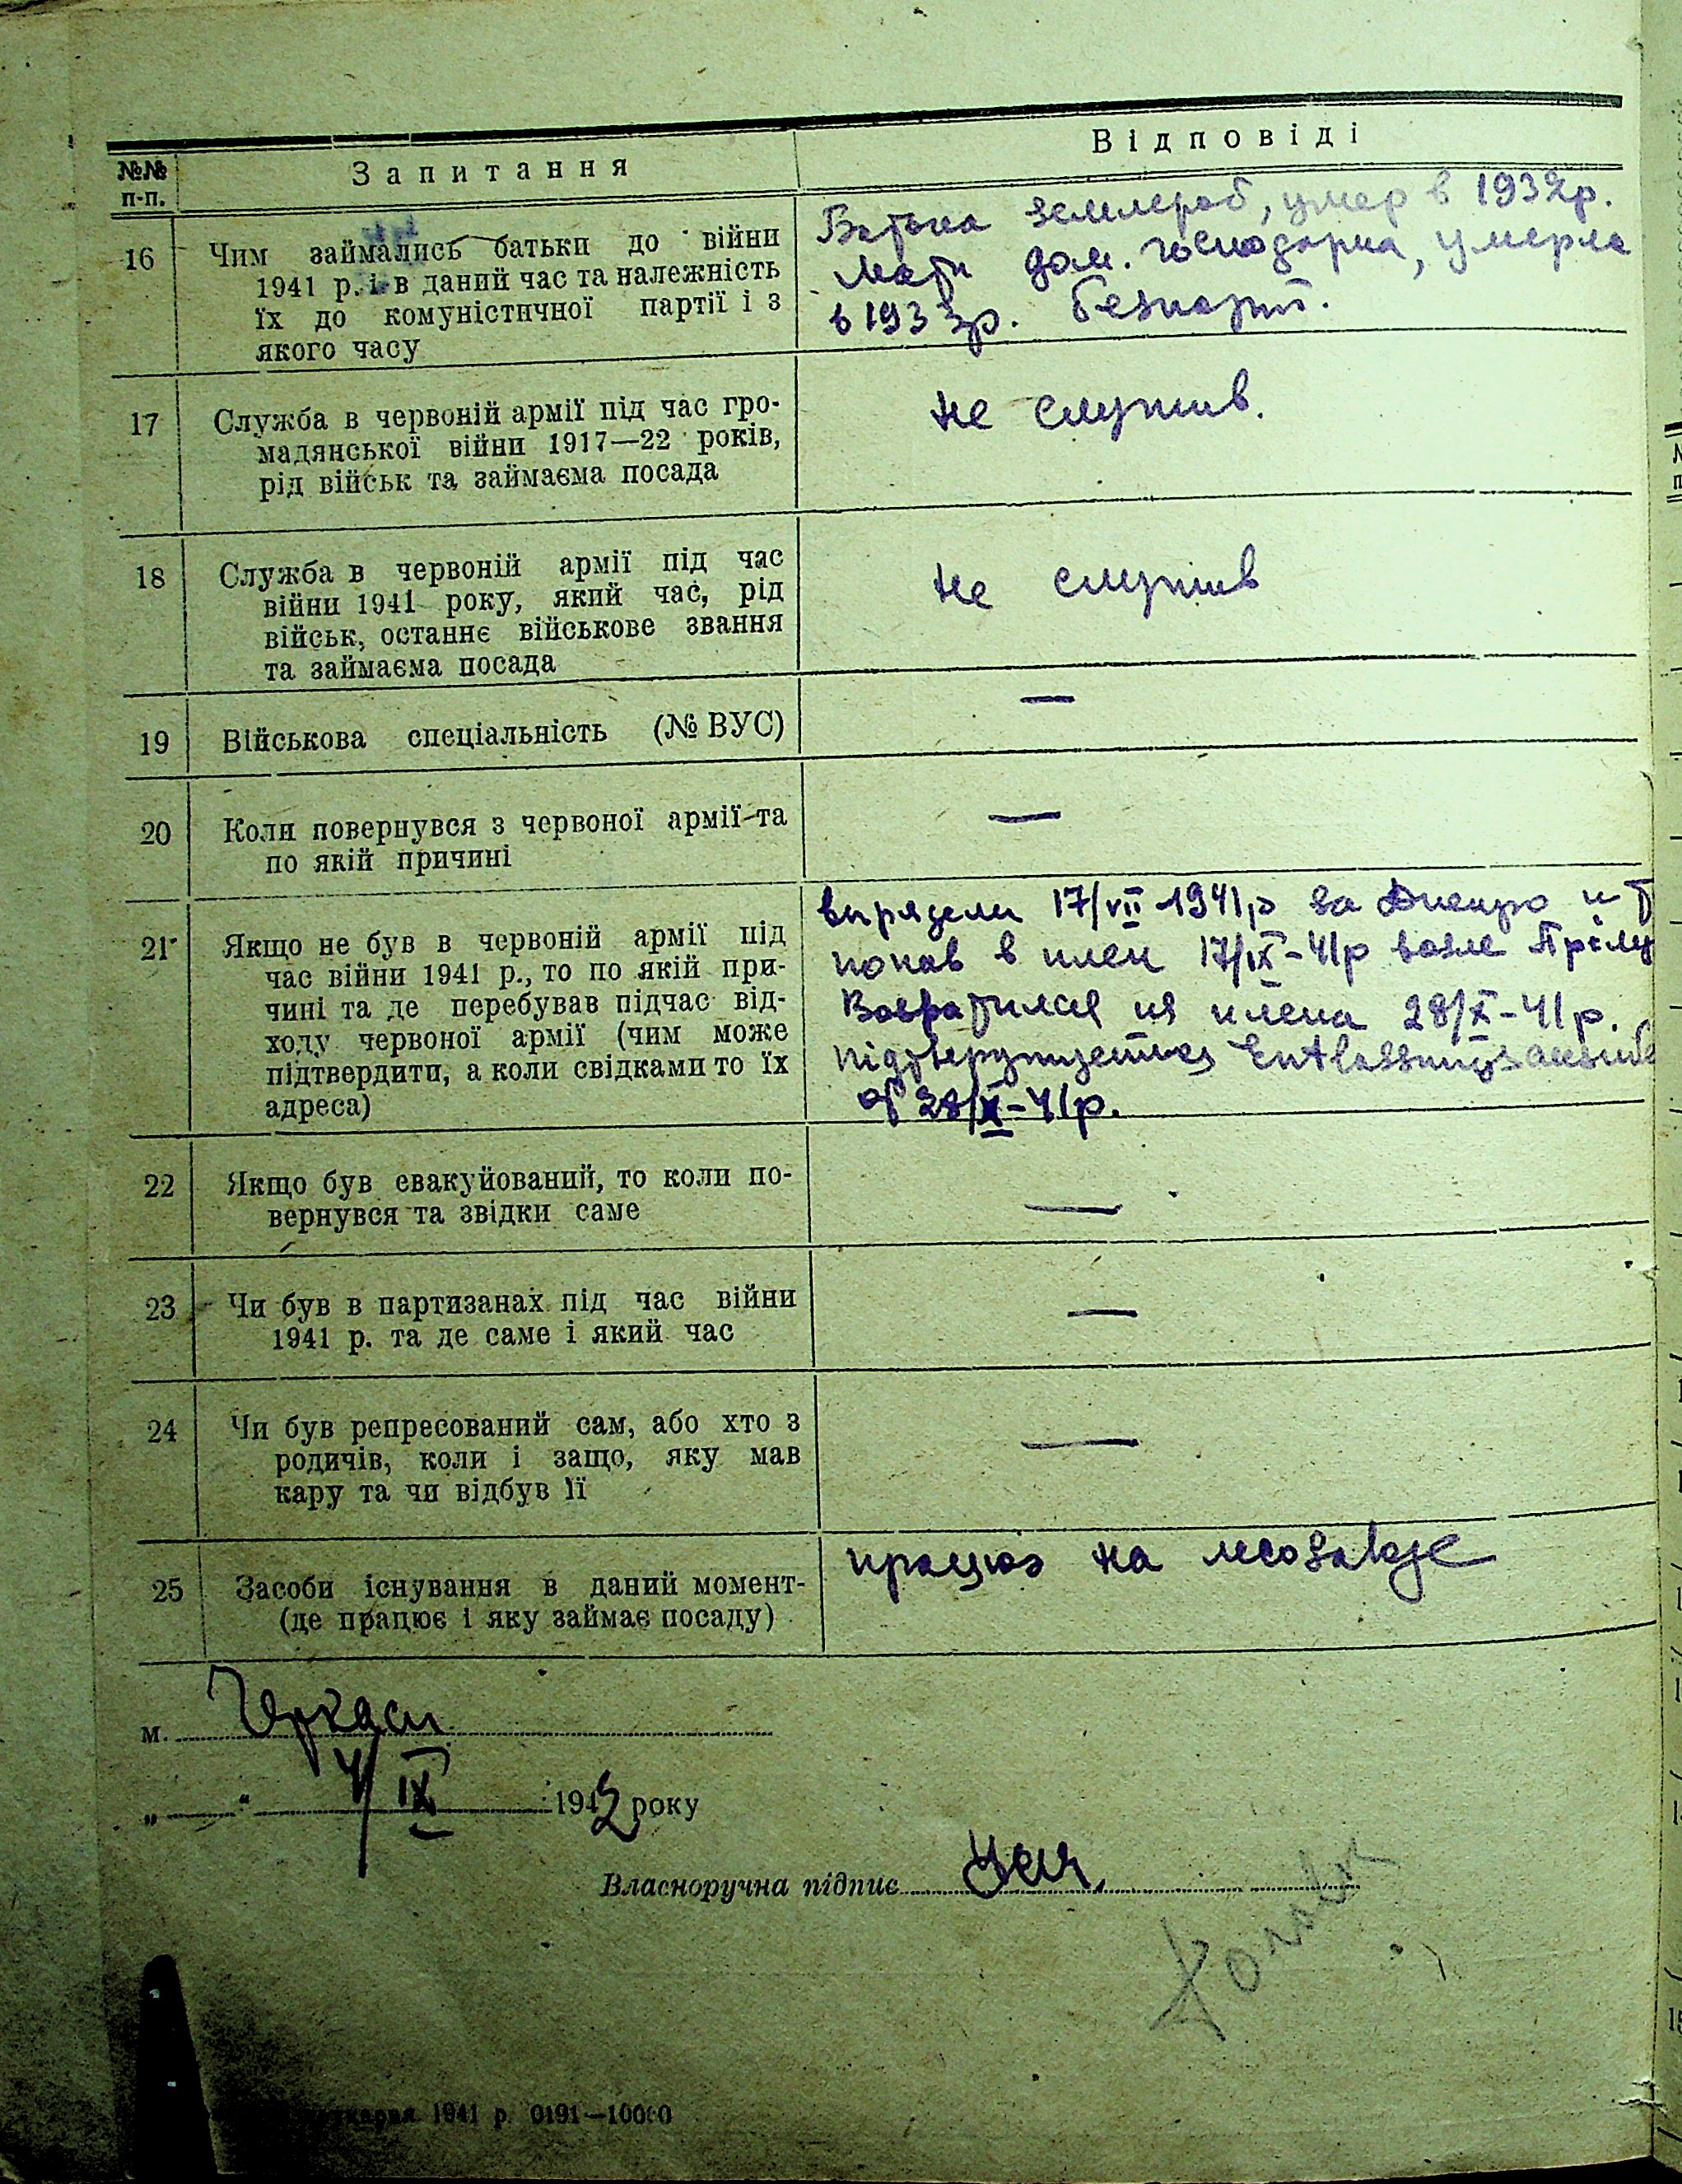 №№ п-п.
Запитання
Відповіді
16
Чим займались батьки до війни
1941 р. і в даний час та належність
їх до комуністичної партії і з
якого часу
Батька землероб, умер в 1932р.
Мати дом. господарка, умерла
в 1933р. безпарт.
17
Служба в червоній армії під час гро-
мадянської війни 1917—22 років,
рід військ та займаєма посада
не служив.
18
Служба в червоній армії під час
війни 1941 року, який час, рід
військ, останнє військове звання
та займаєма посада
не служив
19
Військова спеціальність (№ ВУС)
—
20
Коли повернувся з червоної армії та
по якій причині
—
21
Якщо не був в червоній армії під
час війни 1941 р., то по якій при-
чині та де перебував підчас від-
ходу червоної армії (чим може
підтвердити, а коли свідками то їх
адреса)
17/VII-1941р за Днепро и
попав в плен 17/IX-41р возле
Возвратился из плена 28/X-41р.
от 28/X-41р.
22
Якщо був евакуйований, то коли по-
вернувся та звідки саме
—
23
Чи був в партизанах під час війни
1941 р. та де саме і який час
—
24
Чи був репресований сам, або хто з
родичів, коли і защо, яку мав
кару та чи відбув її
—
25
Засоби існування в даний момент-
(де працює і яку займає посаду)
працюю на
м. Черкаси
„ “ 4/IX 1942 року
Власноручна підпис
1941 р. 0191—10000